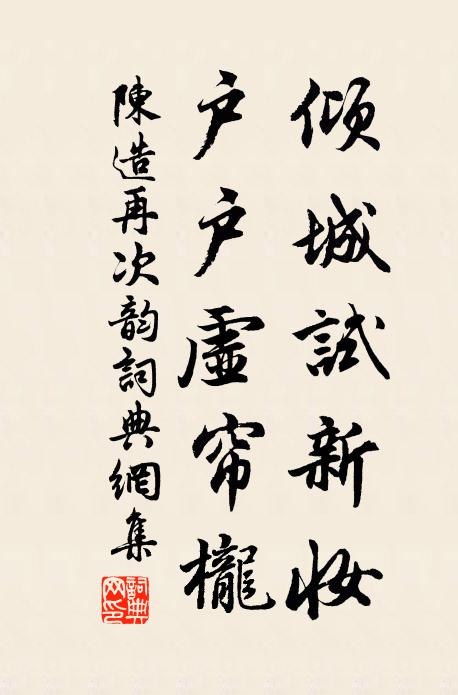 傾城試新妝
户户虛帘櫳
陳造再次韵詞典網集
詞典網印